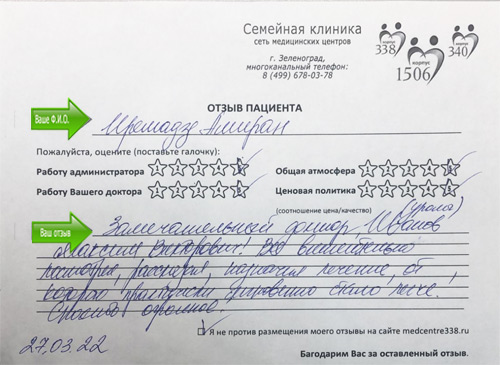 Семейная клиника
сеть медицинских центров
г. Зеленоград,
многоканальный телефон:
8 (499) 678-03-78
корпус 338
корпус 1506
корпус 340
ОТЗЫВ ПАЦИЕНТА
Ваше Ф.И.О.
Иремадзе Амиран
Пожалуйста, оцените (поставьте галочку):
Работу администратора
Общая атмосфера
Работу Вашего доктора
Ценовая политика
(соотношение цена/качество)
Ваш отзыв
Замечательный доктор Иванов (уролог)
Максим Викторович! Всё внимательно
посмотрел, рассказал, назначил лечение, от
которого практически мгновенно стало легче!
Спасибо огромное.
Я не против размещения моего отзыва на сайте medcentre338.ru
27.03.22
Благодарим Вас за оставленный отзыв.